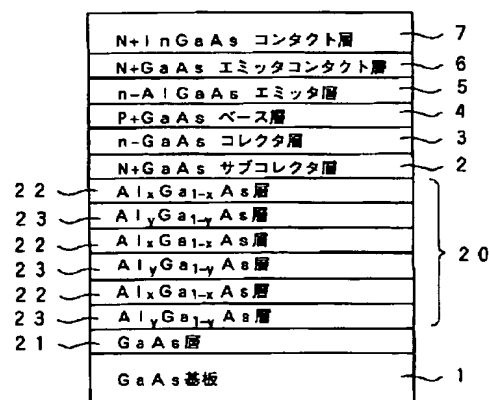 N+InGaAs コンタクト層 7
N+GaAs エミッタコンタクト層 6
n-AlGaAs エミッタ層 5
P+GaAs ベース層 4
n-GaAs コレクタ層 3
N+GaAs サブコレクタ層 2
22 AlxGa1-xAs層
23 AlyGa1-yAs層
22 AlxGa1-xAs層 20
23 AlyGa1-yAs層
22 AlxGa1-xAs層
23 AlyGa1-yAs層
21 GaAs層
GaAs基板 1